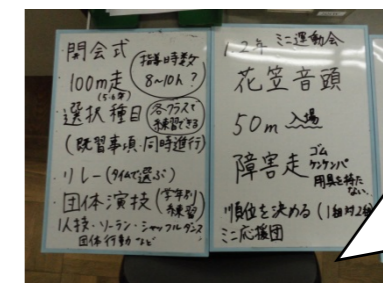 ・開会式
100m走
(5・6年)
指導時数
8~10h?
・選択種目
各クラスで
練習できる
(既習事項・同時進行)
・リレー(タイムで選ぶ)
・団体演技(学年別
練習)
1人技・ソーラン・シャッフルダンス
団体行動など
1、2年 ミニ運動会
花笠音頭
50m 入場
障害走 ゴム
ケンケンパ
用具を持た
ない。
順位を決める(1組対2組)
ミニ応援団